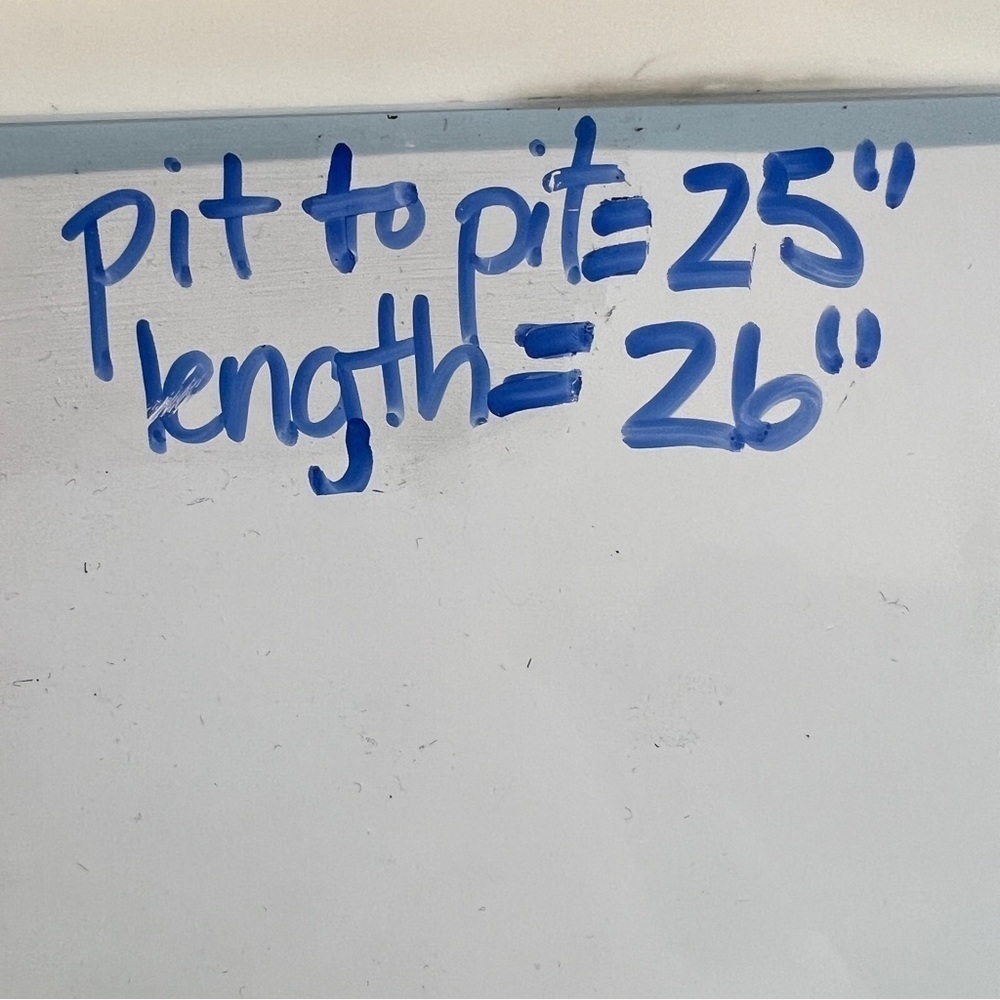 pit to pit= 25"
length= 26"